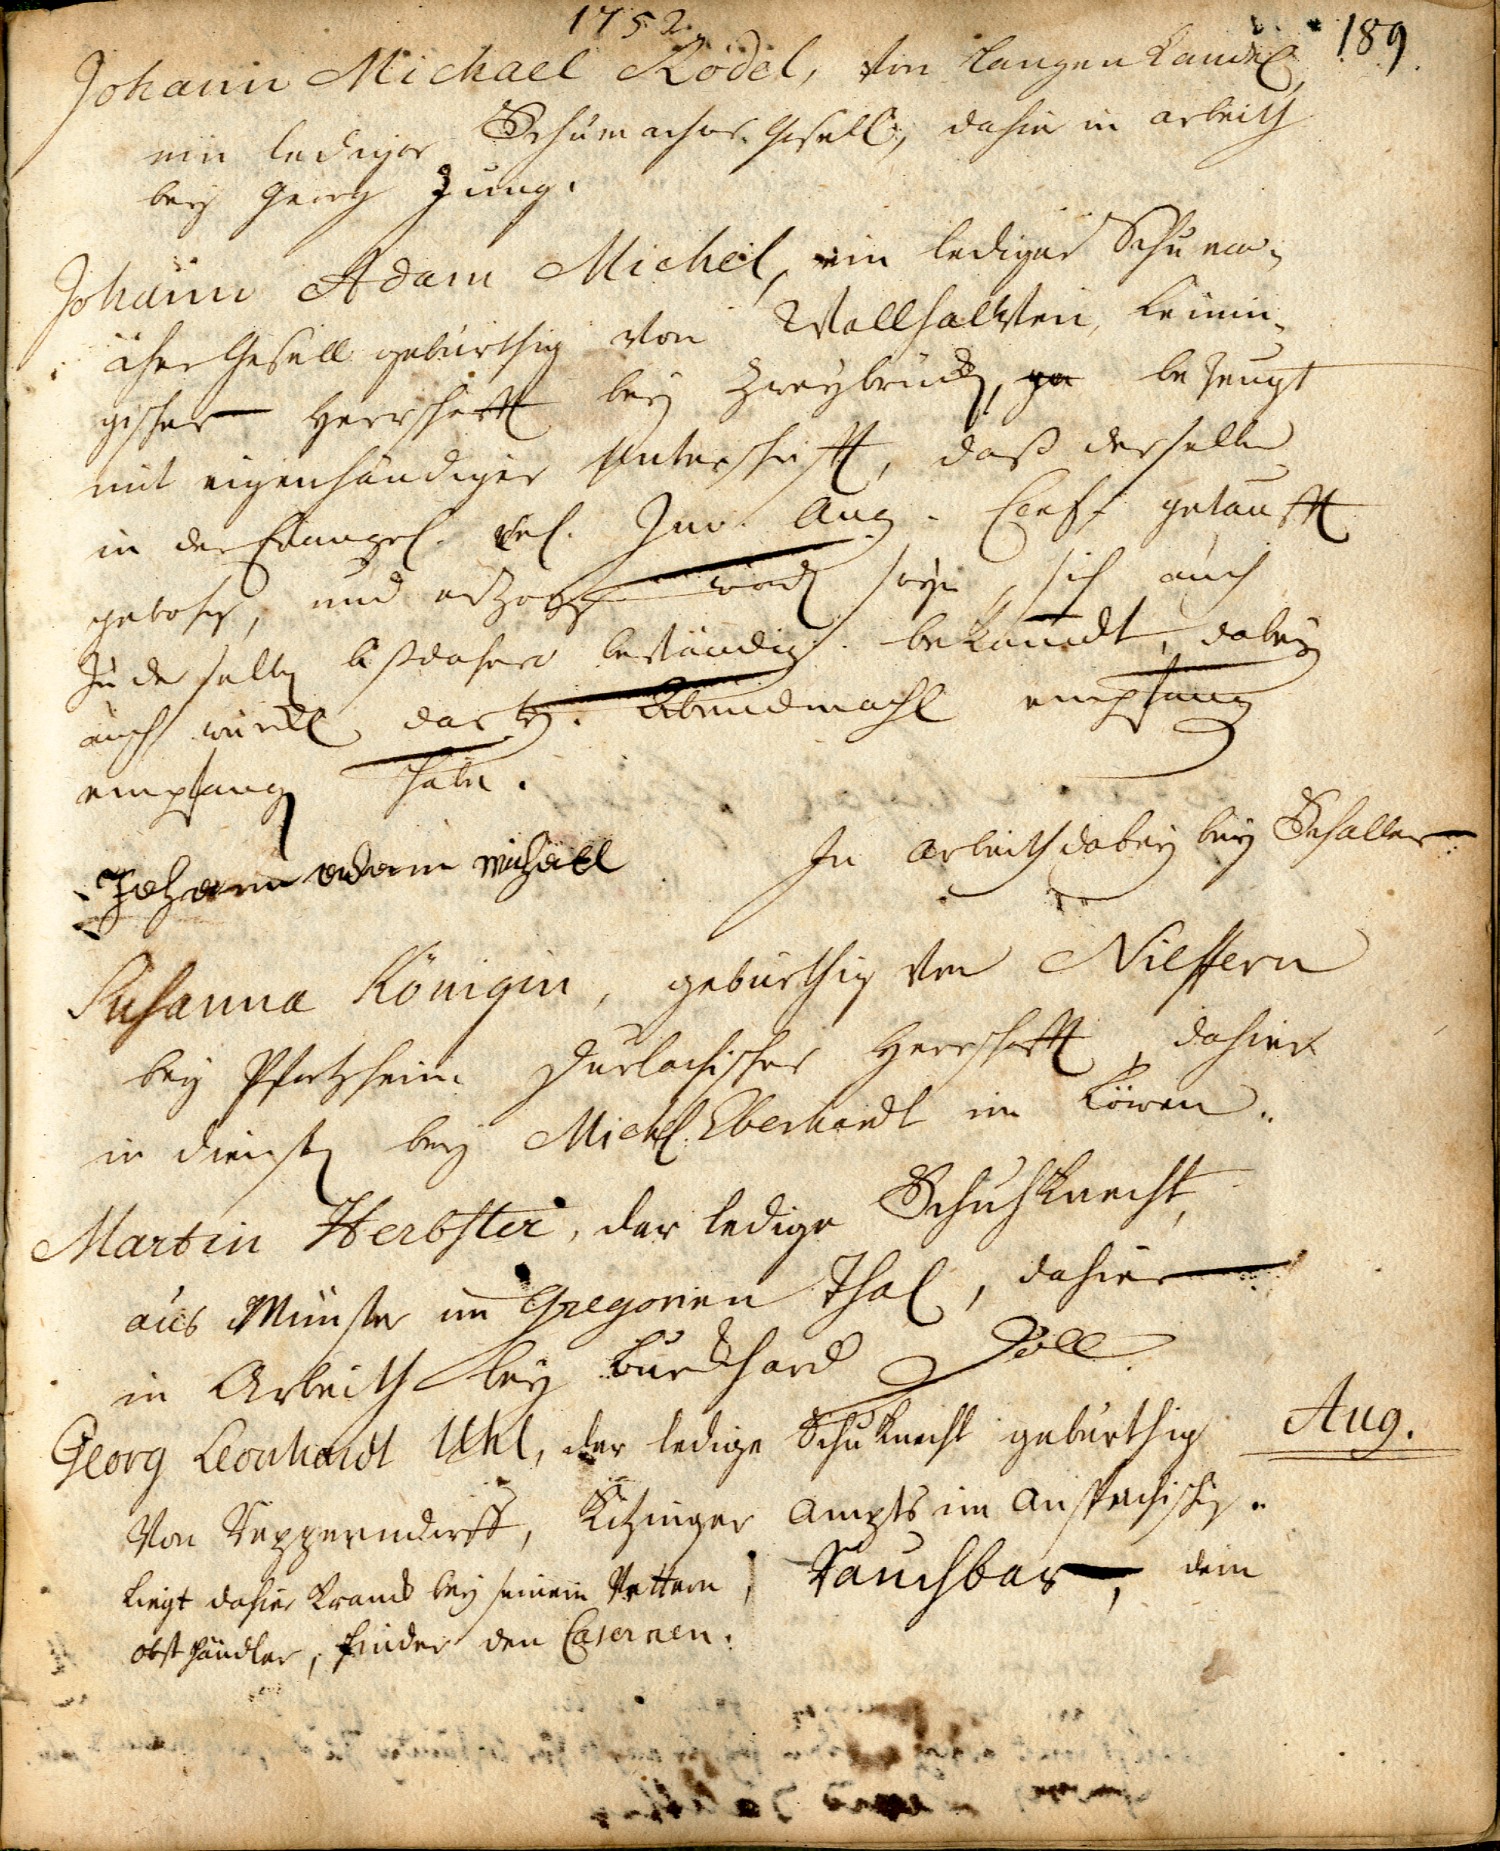 1752.
189.
Johann Michael Rödel, von Langen Kandel,
ein lediger Schumacher Gesell, dahie in arbeith
bey Georg Jung.
Johann Adam Michel, ein lediger Schuma-
cher Gesell gebürthig von Wallhalben, Leinin-
gischer Herrschafft bey Zweybrück, ge bezeugt
mit eigenhändiger Unterschrifft, daß derselbe
in der Evangel. Rel. Inv. Aug. Conf. getaufft
gebohr, und erzog word seye, sich auch
zu derselb bißdahero beständig bekandt, dabey
auch würckl das h. Abendmahl empfang
empfang habe.
Johann adam michell
In arbeith dabey bey Schaller
Susanna Königin, gebürthig von Nieffern
bey Pfortzheim Durlachischer Herrschafft, dahier
in diensten bey Michel Eberhardt im Löwen.
Martin Herbster, der ledige Schuhknecht,
aus Münster im Gregorien Thal, dahier
in Arbeith bey Burckhard Doll.
Aug.
Georg Leonhardt Uhl, der ledige Schuknecht gebürthig
Von Repperndorff, Kitzinger Ampts im Anspachischen.
Liegt dahier kranck bey seinem Vettern, Rauchbar, dem
obsthändler, hinder den Casernen.